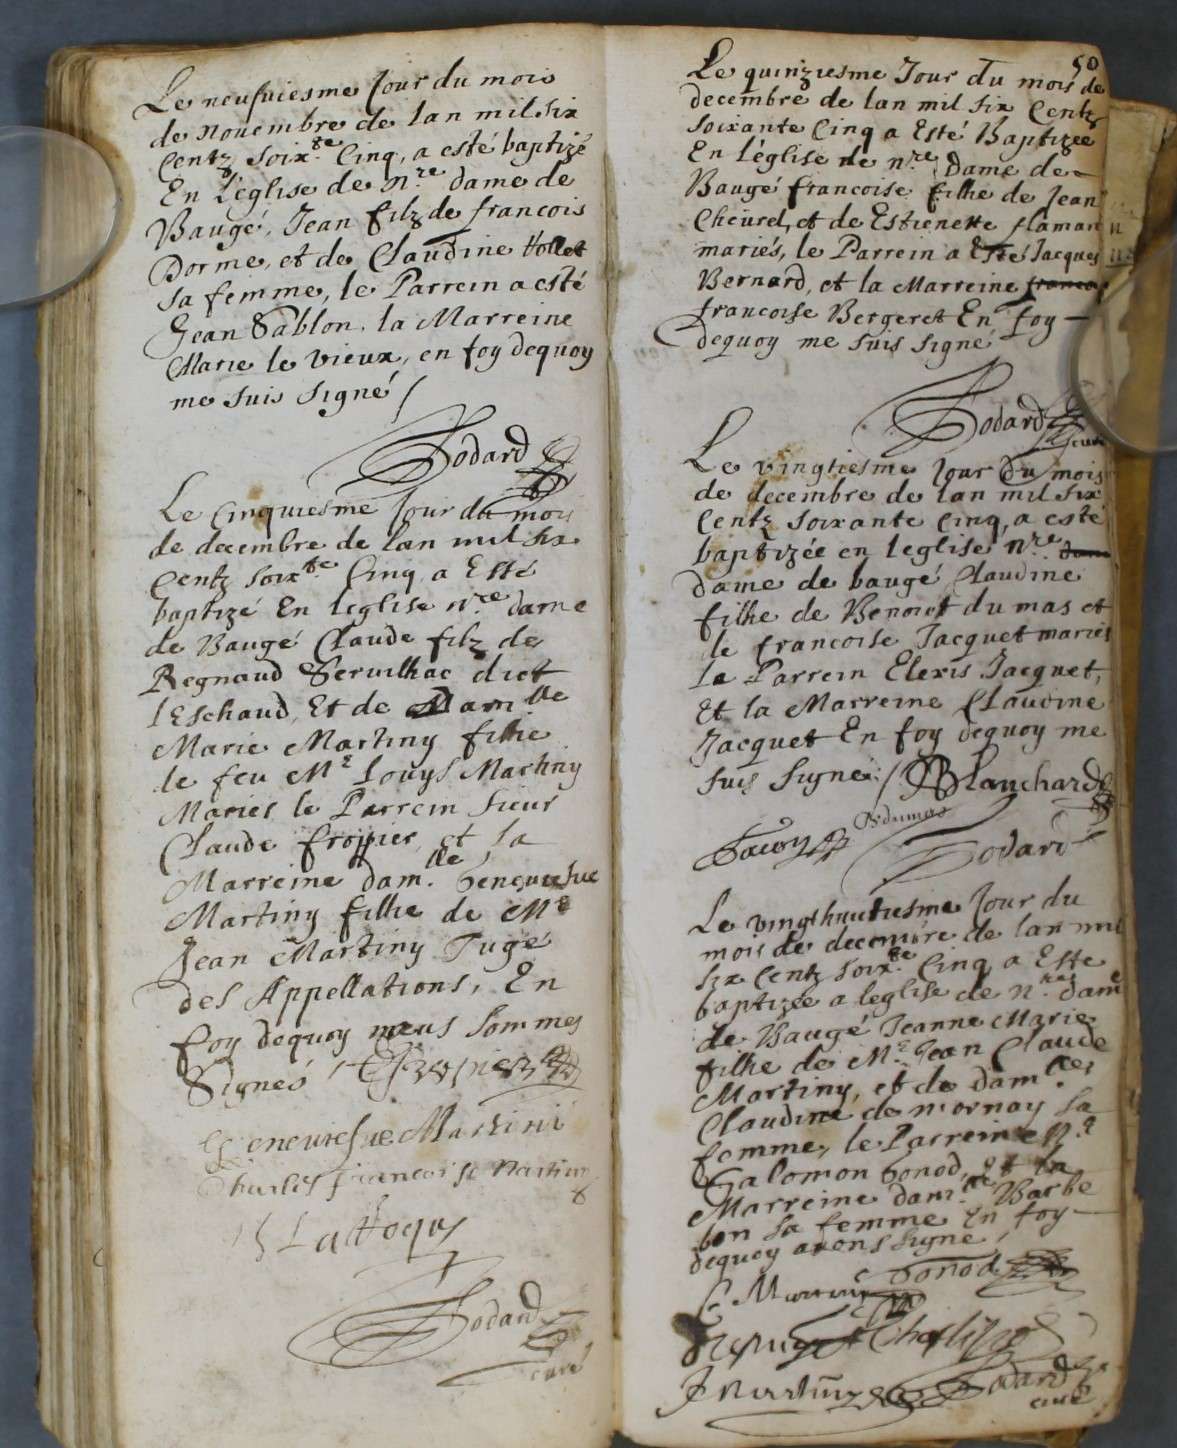 Le neufuiesme Jour du mois
de nouembre de lan mil six
Centz soix.te Cinq, a esté baptizé
En L'eglise de n.re dame de
Baugé, Jean filz de francois
Dorme, et de Claudine Vollet
sa femme, le Parrein a esté
Jean Sablon, la Marreine
Marie le vieux, en foy dequoy
me suis signé /
Dodard
Le Cinquiesme Jour du mois
de decembre de lan mil six
Centz soix.te Cinq, a Esté
baptizé En leglise n.re dame
de Baugé Claude filz de
Regnaud Seruilhac dict
lEschaud, Et de Dam.lle
Marie Martiny fillie
de feu M.e Louys Martiny
Mariés le Parrein sieur
Claude fropier, et la
Marreine dam.lle Geneuiesue
Martiny fillie de M.e
Jean Martiny Juge
des Appellations, En
foy dequoy nous sommes
Signés / C fropier
Geneuiesue Martini
Charles francois Martiny
Dodard
curé
50
Le quinziesme Jour Du mois de
decembre de lan mil six Centz
soixante Cinq a Esté Baptizée
En L'église de n.re Dame de
Baugé francoise fillie de Jean
Cheurel, et de Estienette flaman
mariés, le Parrein a Esté Jacques
Bernard, et la Marreine francoi
francoise Bergeret En foy
dequoy me suis signé
Dodard
curé
Le vingtiesme Jour Du mois
de decembre de lan mil six
Centz soixante Cinq, a esté
baptizée en leglise n.re dame
dame de baugé, Claudine
fillie de Benoict du mas et
de francoise Jacquet mariés
Le Parrein Elexis Jacquet,
Et la Marreine Claudine
Jacquet En foy dequoy me
suis signé / Blanchard
B dumas
Dodard
Le vingthuictiesme Jour du
mois de decembre de lan mil
six Centz soix.te Cinq a Esté
baptizée a leglise de n.re dame
de Baugé Jeanne Marie
fillie de M.e Jean Claude
Martiny, et de dam.lle
Claudine de mornay sa
femme, le Parrein M.e
Salomon Gonod, et la
Marreine dam.lle Barbe
bon sa femme En foy
dequoy auons signé /
C Martiny Gonod
J Martiny Dodard
curé